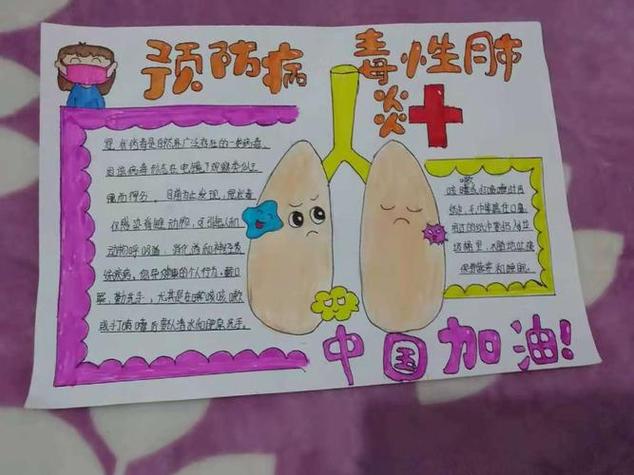 预防病毒性肺炎
冠状病毒是自然界广泛存在的一种病毒。
因该病毒形态在电镜下观察类似王
冠而得名。目前为止发现，冠状病毒
仅感染脊椎动物，可引起人和
动物呼吸道、消化道和神经系
统疾病。倡导健康的个人行为，戴口
罩，勤洗手，尤其是在咳嗽
或打喷嚏后要以清水和肥皂洗手。
咳嗽或打喷嚏时用
纸巾
垃圾桶里
保持 和睡眠。
中国加油!